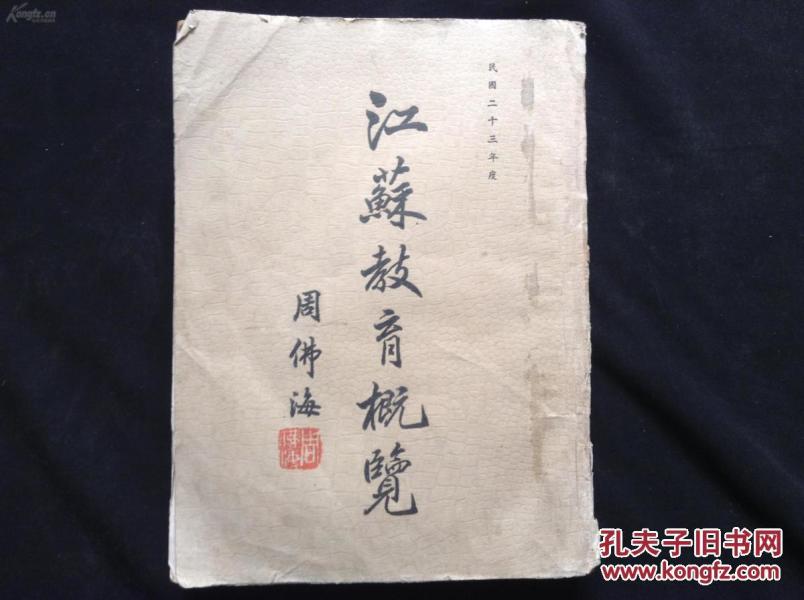 Kongfz.cn
民國二十三年度
江蘇教育概覽
周佛海
孔夫子旧书网
www.kongfz.com